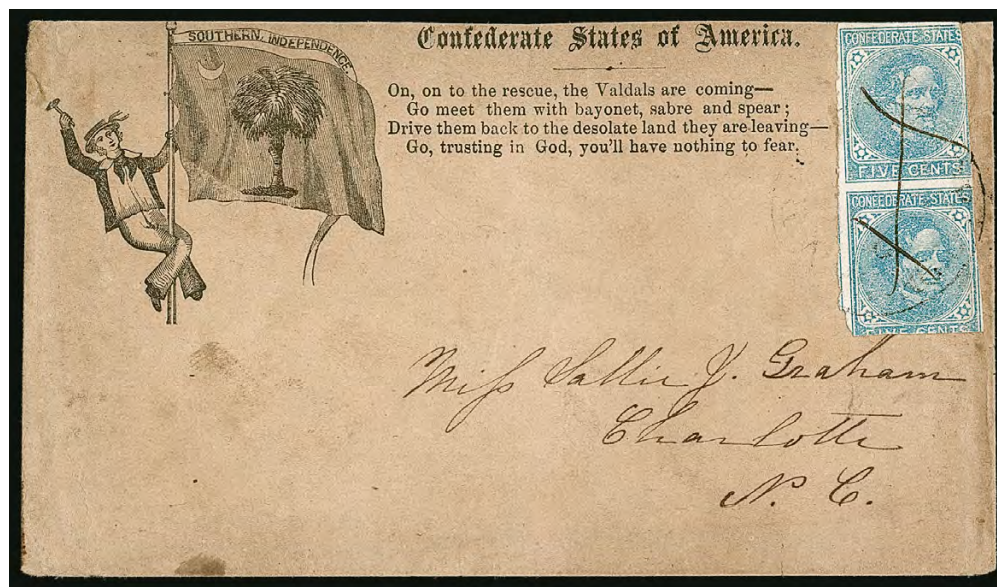 SOUTHERN. INDEPENDENCE.
Confederate States of America.
On, on to the rescue, the Valdals are coming—
Go meet them with bayonet, sabre and spear;
Drive them back to the desolate land they are leaving—
Go, trusting in God, you'll have nothing to fear.
CONFEDERATE STATES
FIVE CENTS
CONFEDERATE STATES
FIVE CENTS
Miss Sallie J. Graham
Charlotte
N. C.